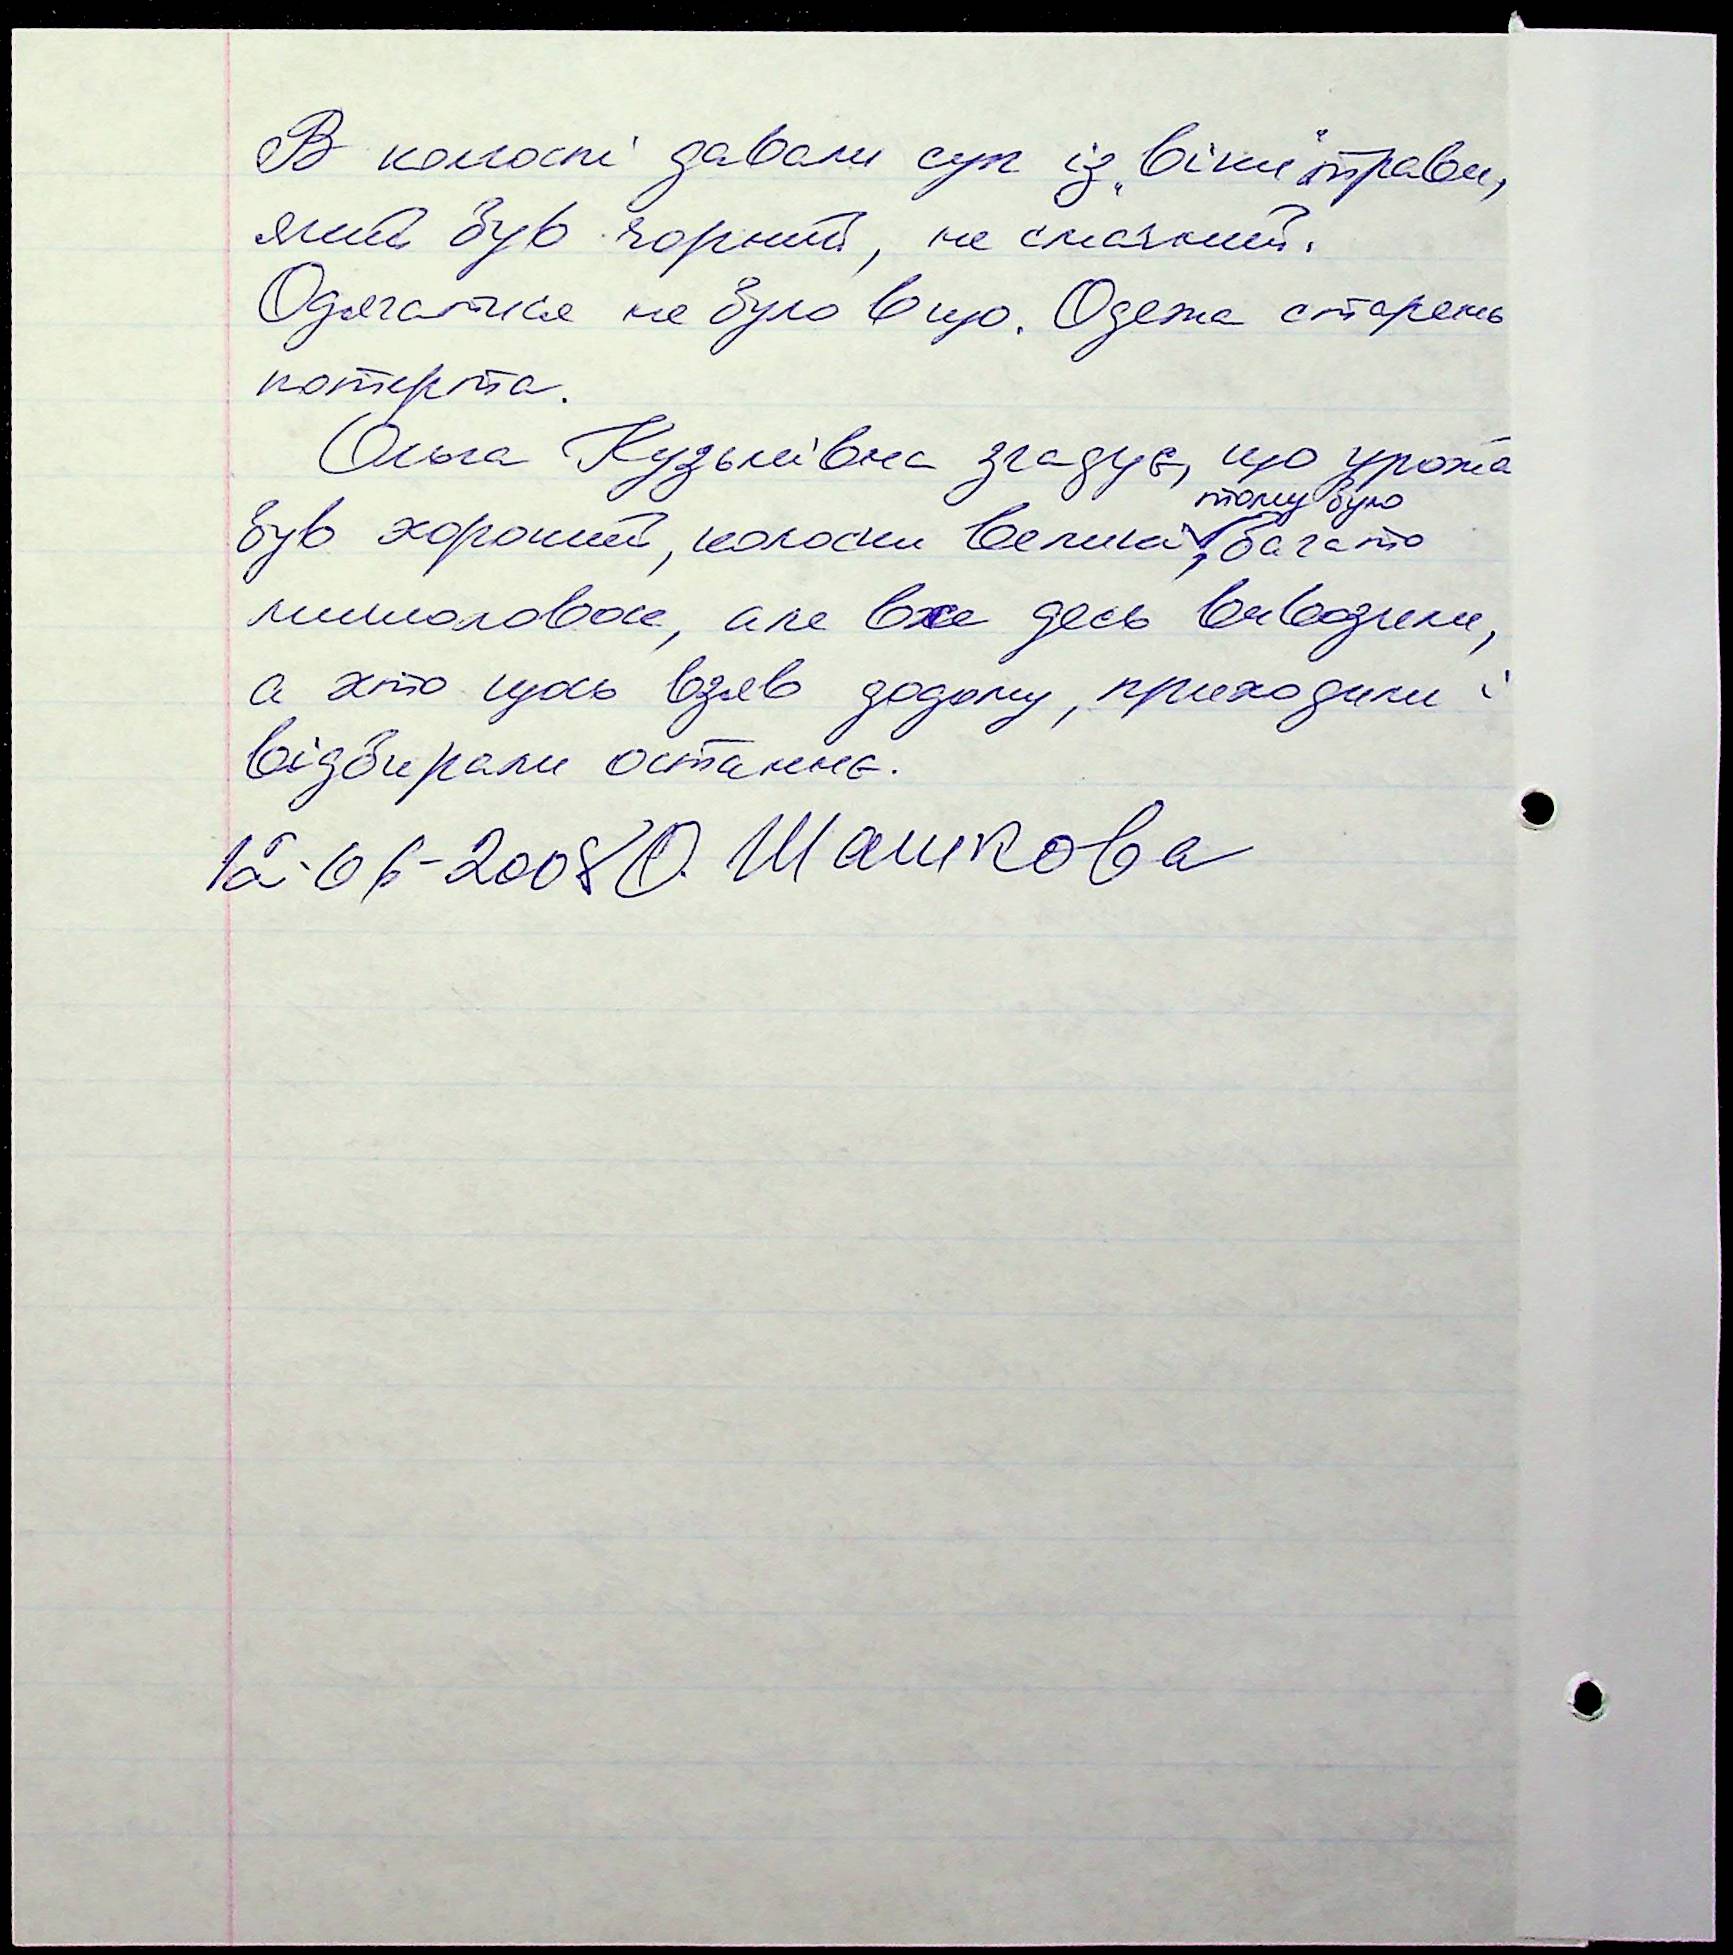 В колгоспі давали суп із „віки“ трави,
який був чорний, не смачний.
Одягатися не було в що. Одежа старень
потерта.
Ольга Кузьмівна згадує, що урожа
був хороший, колоски великі, тому було багато
мишоловок, але все десь вивозили,
а хто щось взяв додому, приходили і
відбирали останнє.
12-06-2008 О. Шашкова